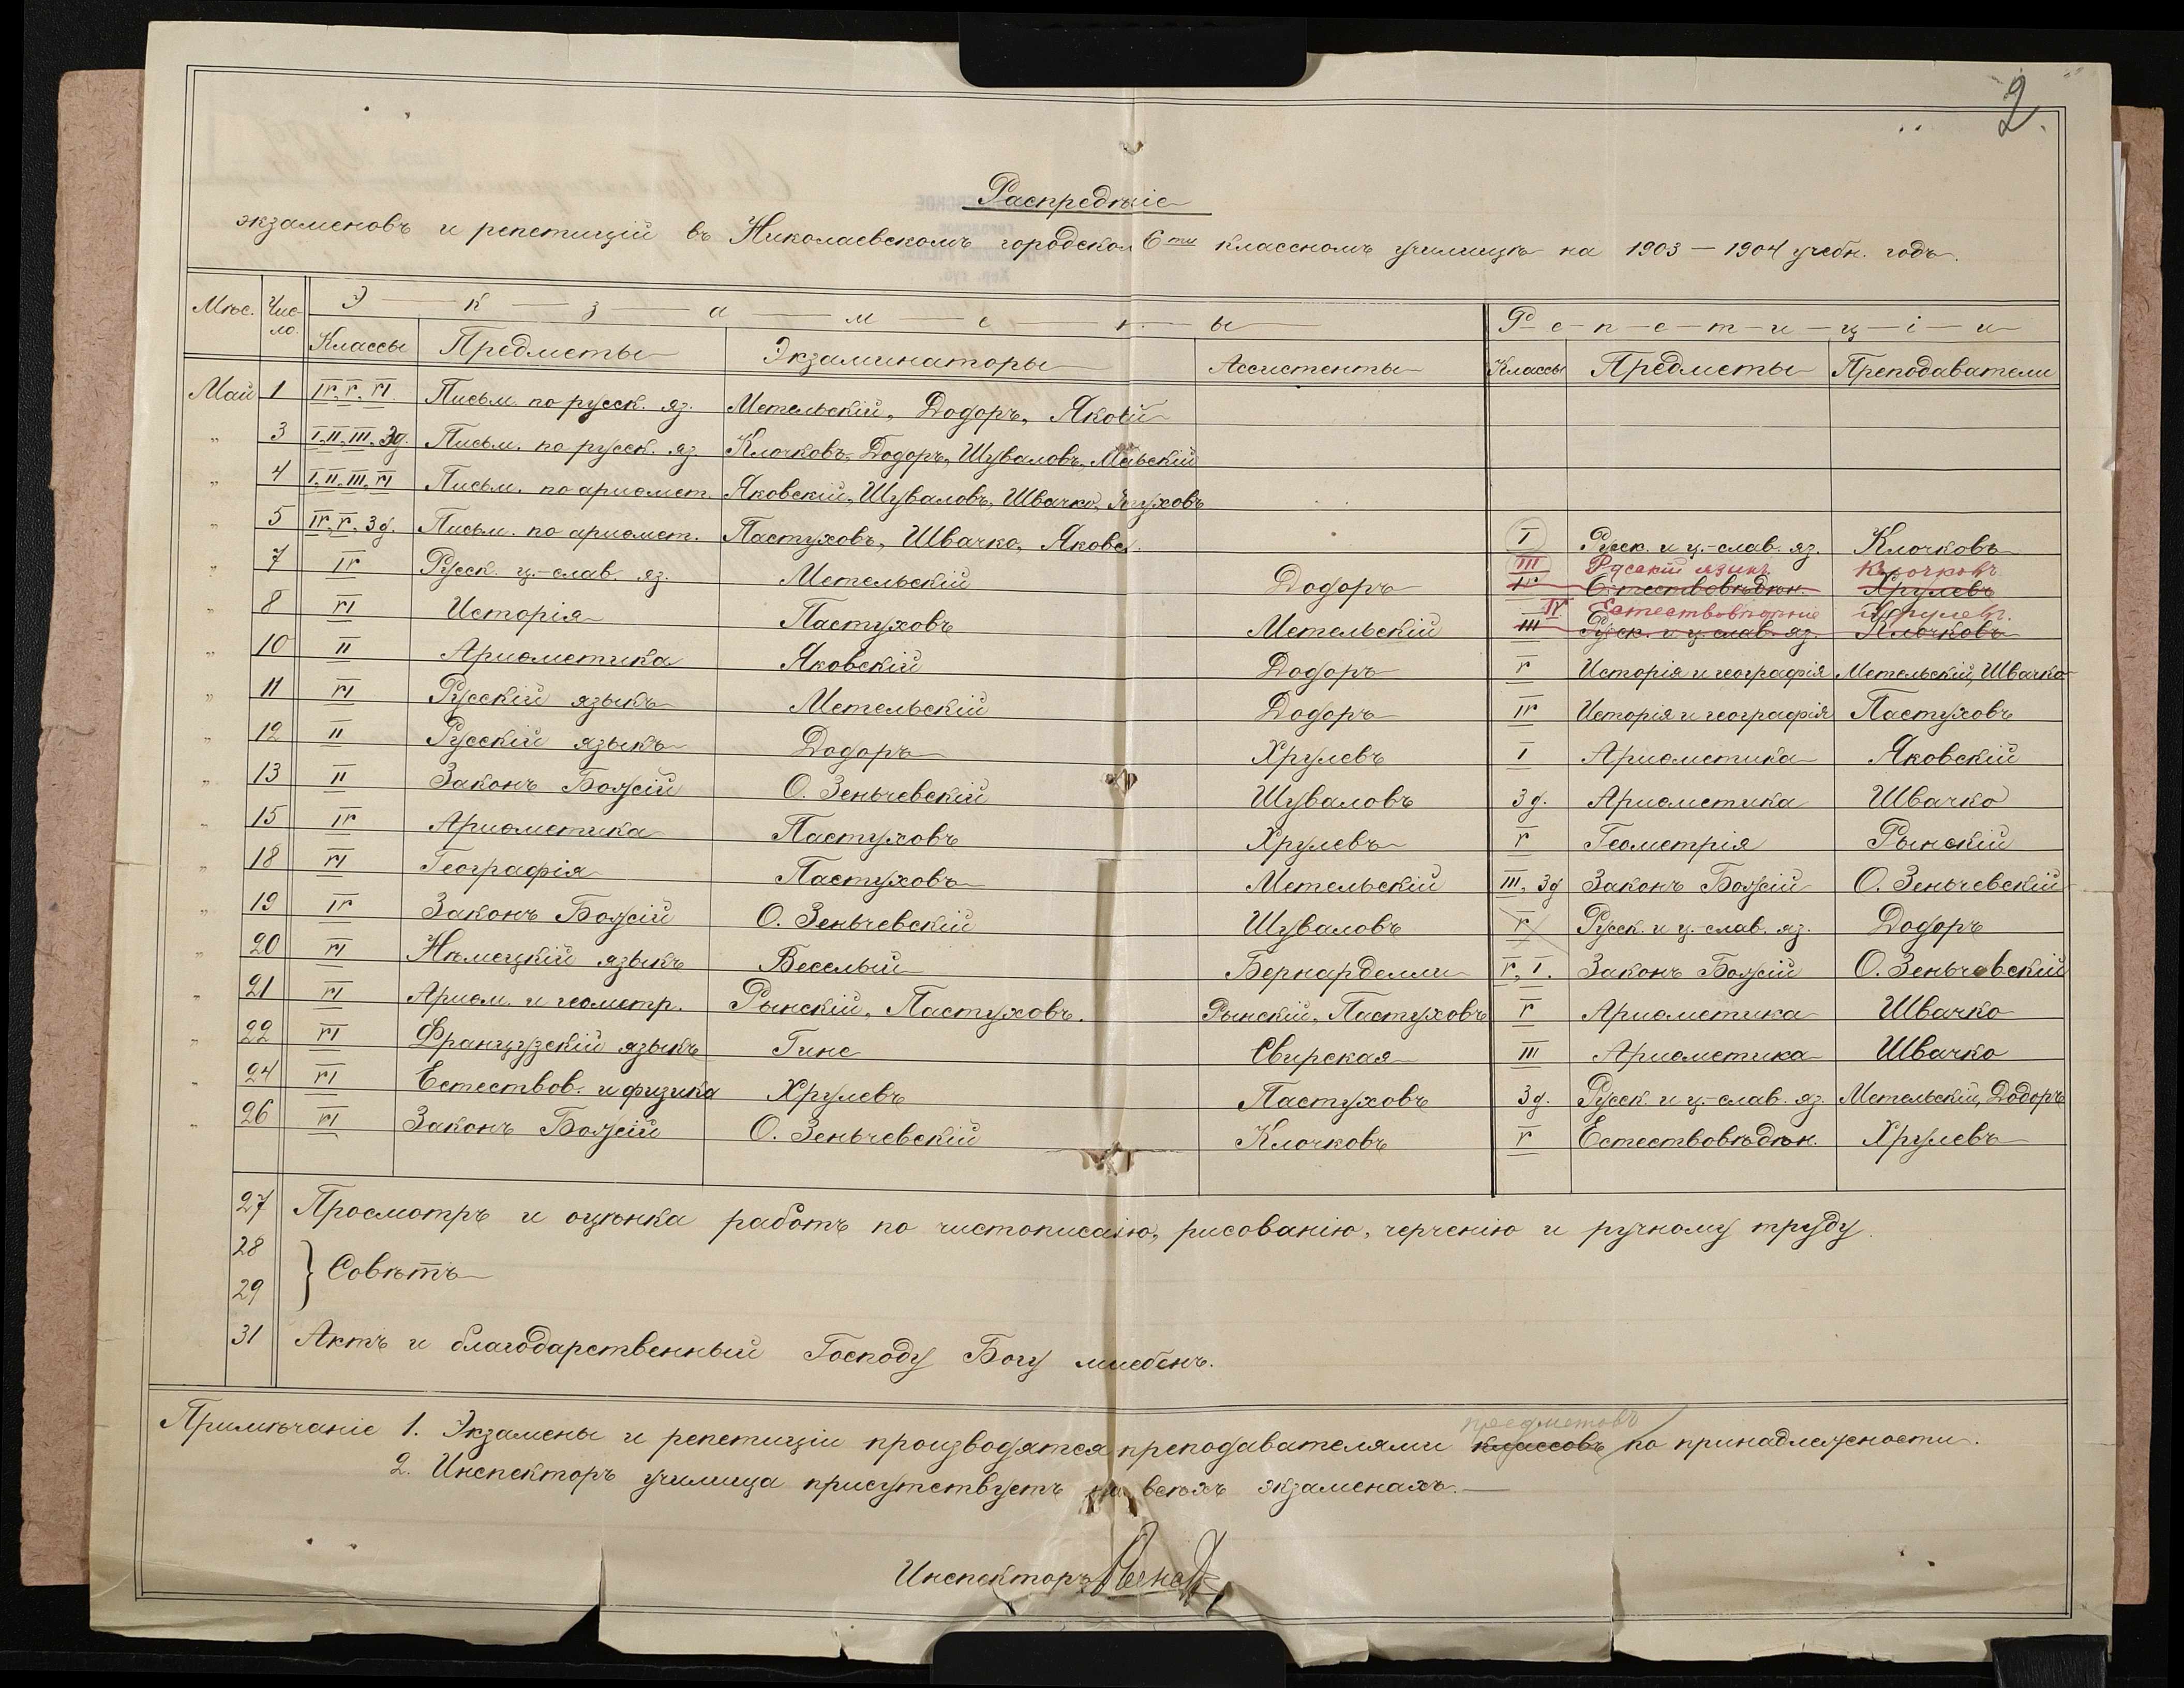 2.
Распредѣ
экзаменовъ и репетицій въ Николаевскомъ городском 6ти классномъ училищѣ на 1903 — 1904 учебн. годъ.
Мѣс. Число. Э — к — з — а — м — е — н — ы Р — е — п — е — т — и — ц — і — и
Классы Предметы Экзаминаторы Ассистенты Классы Предметы Преподаватели
Май 1 IV, V, VI. Письм. по русск. яз. Метельскій, Додоръ, Яко
„ 3 I, II, III, 3д. Письм. по русск. яз. Клочковъ, Додоръ, Шуваловъ, Мльскій
„ 4 I, II, III, VI Письм. по ариѳмет. Яковскій, Шуваловъ, Швачко, уховъ
„ 5 IV, V, 3д. Письм. по ариѳмет. Пастуховъ, Швачко, Яковс I Русск. и ц.-слав. яз. Клочковъ
III Русскій языкъ Клочковъ
„ 7 IV Русск. ц.-слав. яз. Метельскій Додоръ IV Естествовѣдѣн. Хрулевъ
IV Естествовѣдѣніе Хрулевъ.
„ 8 VI Исторія Пастуховъ Метельскій III Русск. и ц. слав. яз. Клочковъ
„ 10 II Ариѳметика Яковскій Додоръ V Исторія и географія Метельскій, Швачко
„ 11 VI Русскій языкъ Метельскій Додоръ IV Исторія и географія Пастуховъ
„ 12 II Русскій языкъ Додоръ Хрулевъ I Ариѳметика Яковскій
„ 13 II Законъ Божій О. Зеньчевскій Шуваловъ 3д. Ариѳметика Швачко
„ 15 IV Ариѳметика Пастуховъ Хрулевъ V Геометрія Рынскій
„ 18 VI Географія Пастуховъ Метельскій III, 3д Законъ Божій О. Зеньчевскій
„ 19 IV Законъ Божій О. Зеньчевскій Шуваловъ V Русск. и ц.-слав. яз. Додоръ
„ 20 VI Нѣмецкій языкъ Веселый Бернарделли V, I. Законъ Божій О. Зеньчевскій
„ 21 VI Ариѳм. и геометр. Рынскій, Пастуховъ. Рынскій, Пастуховъ V Ариѳметика Швачко
„ 22 VI Французскій языкъ Гинс Свирская III Ариѳметика Швачко
„ 24 VI Естествов. и физика Хрулевъ Пастуховъ 3д. Русск. и ц.-слав. яз. Метельскій, Додоръ
„ 26 VI Законъ Божій О. Зеньчевскій Клочковъ V Естествовѣдѣн. Хрулевъ
27 Просмотръ и оцѣнка работъ по чистописанію, рисованію, черченію и ручному труду.
28
} Совѣтъ
29
31 Актъ и благодарственный Господу Богу молебенъ.
предметовъ
Примѣчаніе 1. Экзамены и репетиціи производятся преподавателями классовъ по принадлежности.
2. Инспекторъ училища присутствуетъ на всѣхъ экзаменахъ.—
Инспекторъ